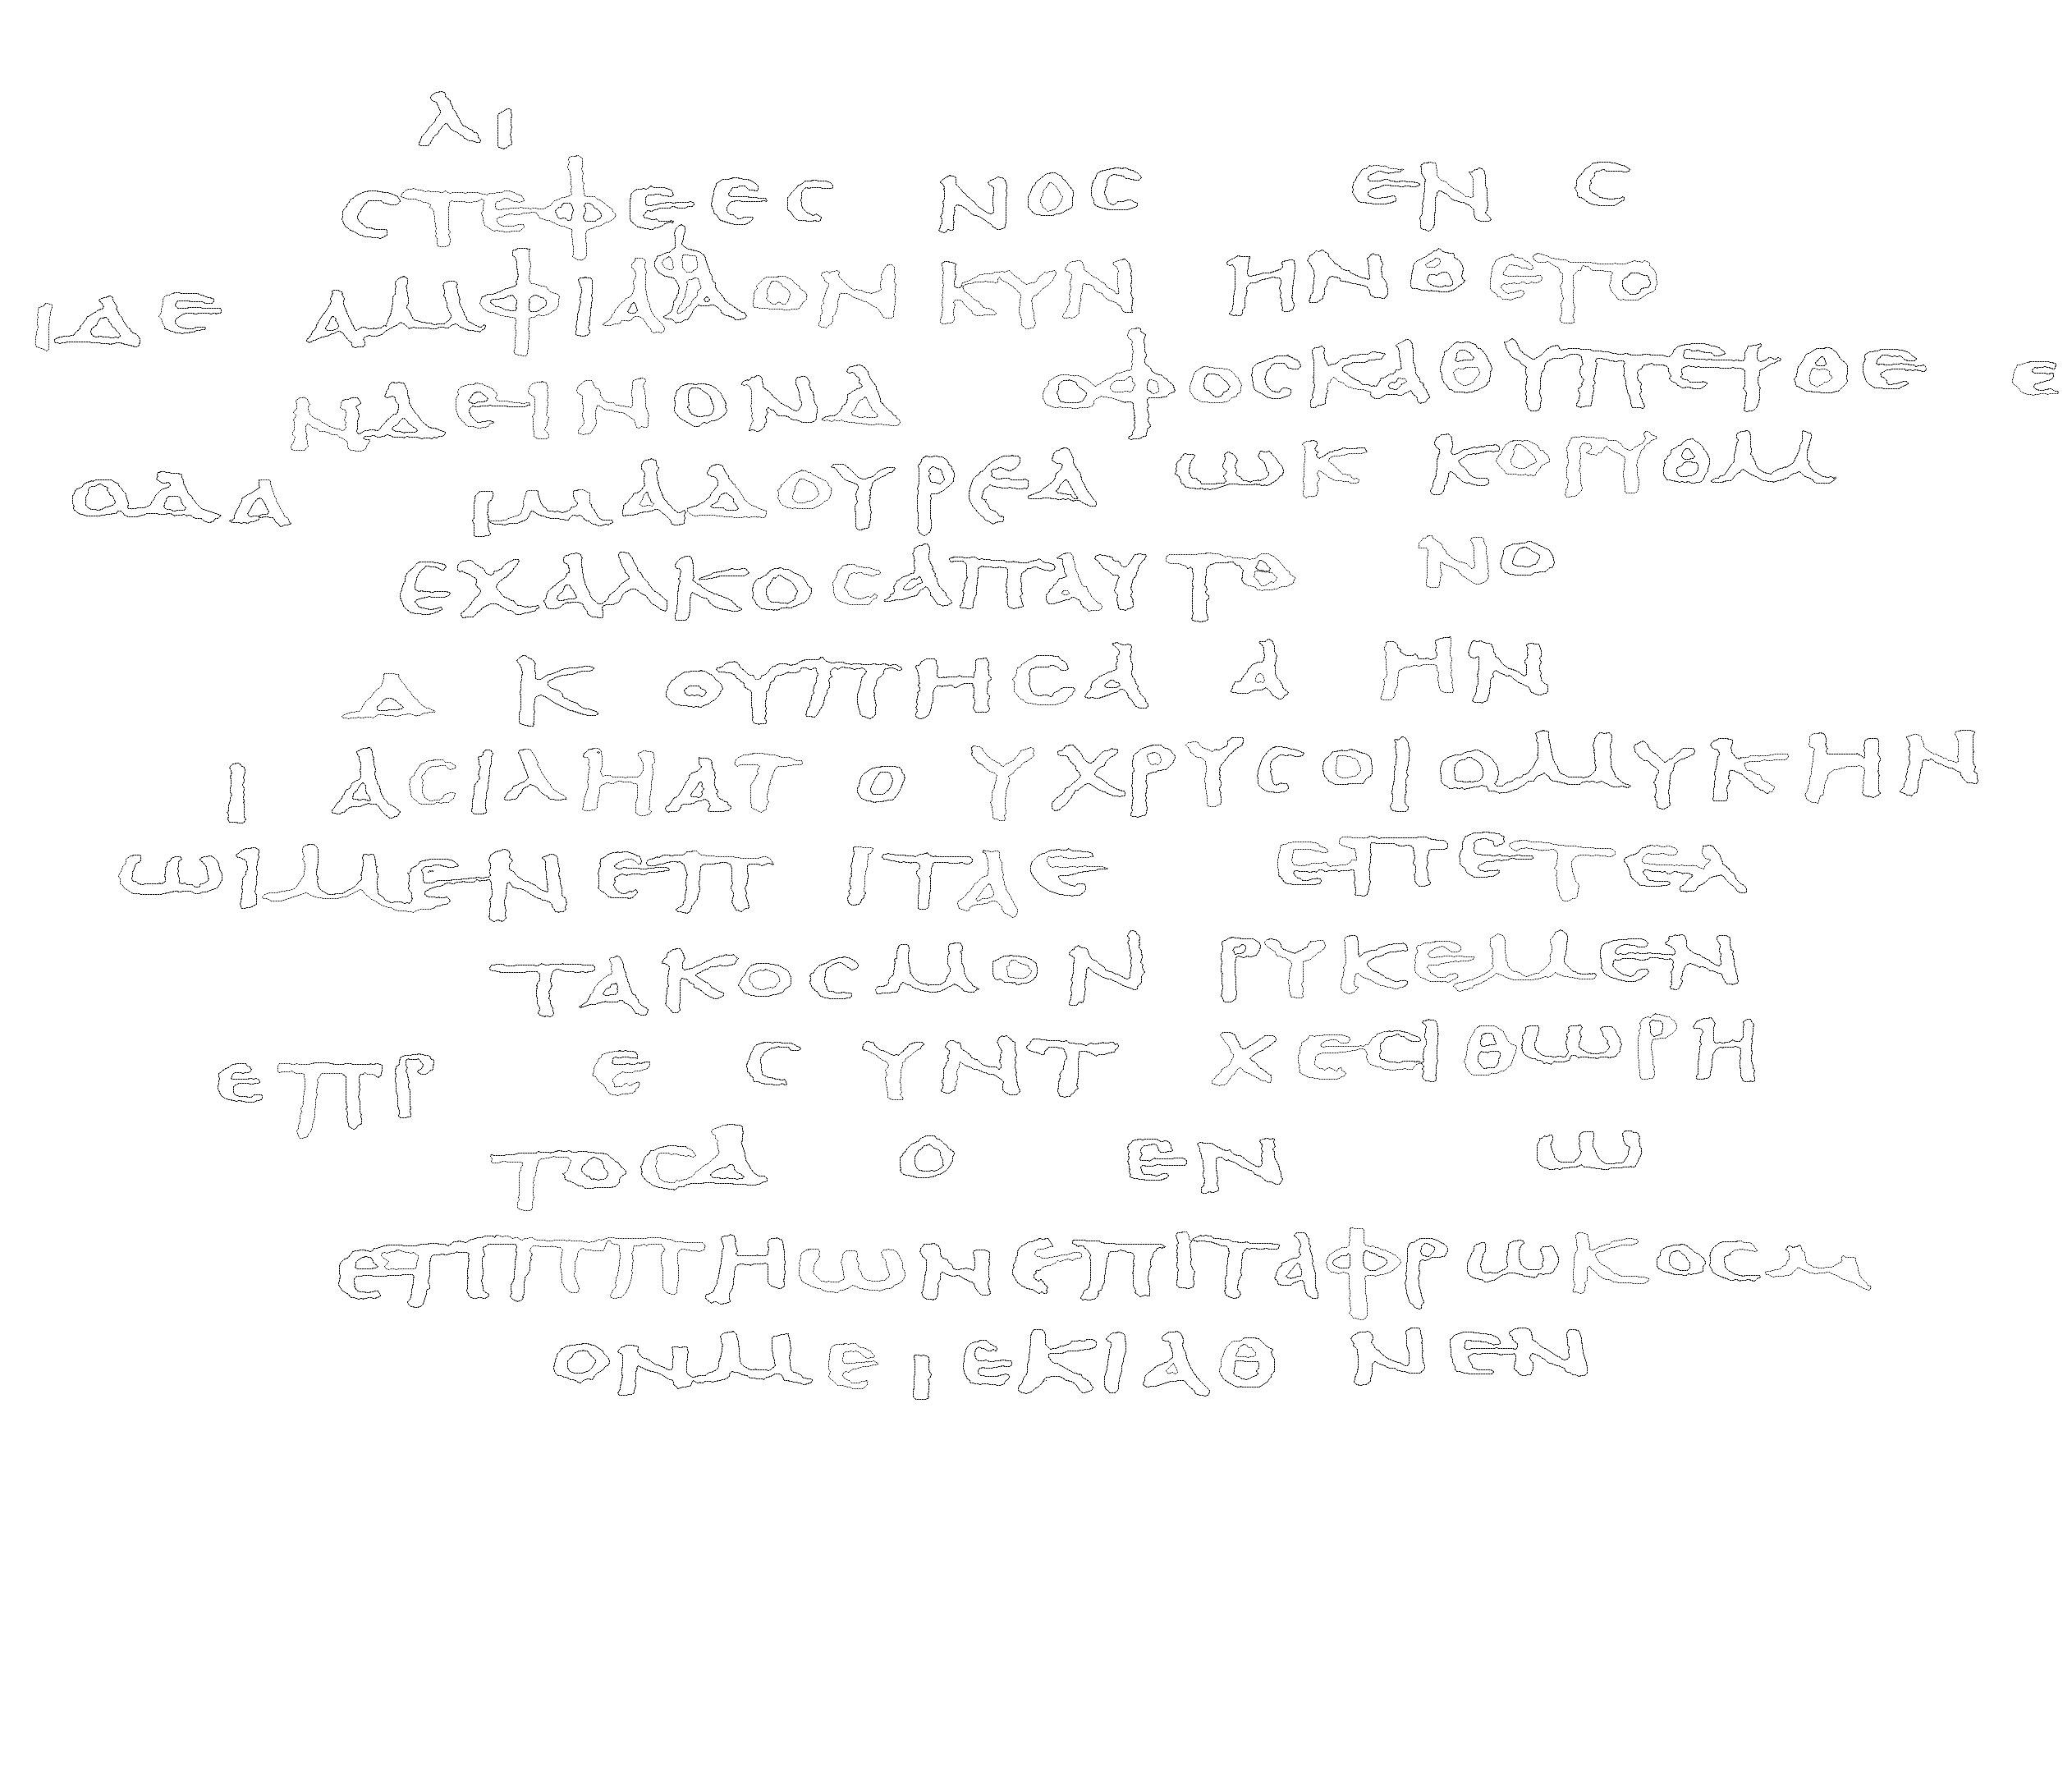 λι
ϲτεφεεϲ νοϲ εν ϲ
ιδε αμφιαφαον κυν ηνθετο
νδεινονδ οφοϲκαθυπετθε ε
οδα ιμαδουρεα ωκ κορυθμ
εχαλκοϲαπαυτο νο
δ κ ουπηϲα α ην
ι αϲιληατ ο υχρυϲοιομυκην
ωιμενεπ ιταε επετελ
τακοϲμον ρυκεμεν
επρ ε ϲ υντ χεϲιθωρη
τοϲδ ο εν ω
επιππηωνεπιταφρωκοϲμ
ονμε ιεκιαθ νεν